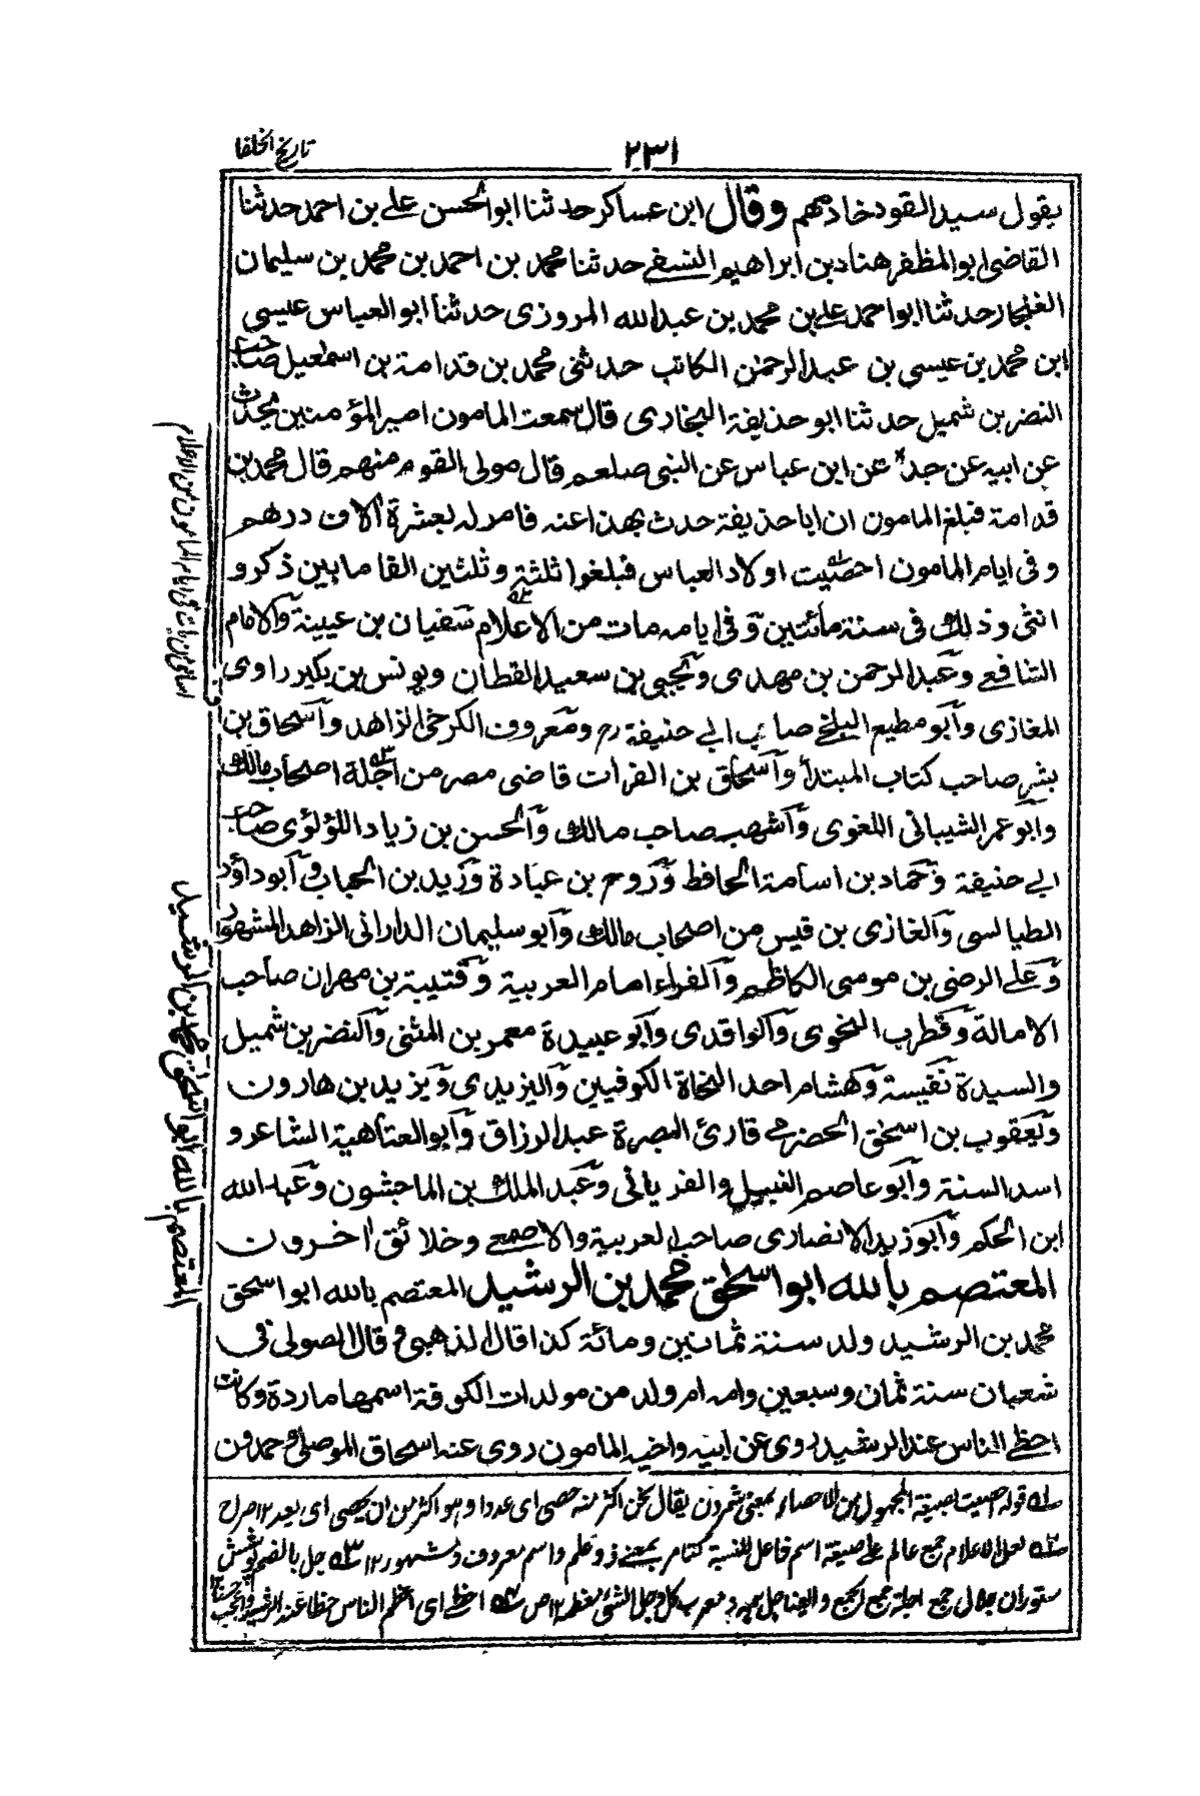 تاريخ الخلفا
٢٣١
يقول سيد القوم خادمهم وقال ابن عساكر حدثنا ابو الحسن علي بن احمد حدثنا
القاضي ابو المظفر هناد بن ابراهيم النسفي حدثنا محمد بن احمد بن محمد بن سليمان
الغنجار حدثنا ابو احمد علي بن محمد بن عبد الله المروزى حدثنا ابو العباس عيسى
ابن محمد بن عيسى بن عبد الرحمن الكاتب حدثنى محمد بن قدامة بن اسمعيل صاحب
النضر بن شميل حدثنا ابو حذيفة البخارى قال سمعت المامون امير المؤمنين يحدث
عن ابيه عن جده عن ابن عباس عن النبى صلعم قال مولى القوم منهم قال محمد بن
قدامة فبلغ المامون ان ابا حذيفة حدث بهذا عنه فامر له بعشرة الاف درهم
وفى ايام المامون احصيت اولاد العباس فبلغوا ثلثة وثلثين الفا ما بين ذكر و
انثى وذلك فى سنة مائتين وفى ايامه مات من الاعلام سفيان بن عيينة والامام
الشافعي وعبد الرحمن بن مهدى ويحيى بن سعيد القطان ويونس بن بكير راوى
المغازى وابو مطيع البلخي صاحب ابي حنيفة رح ومعروف الكرخى الزاهد واسحاق بن
بشر صاحب كتاب المبتدأ واسحاق بن الفرات قاضى مصر من اجلة اصحاب مالك
وابو عمر الشيبانى اللغوى واشهب صاحب مالك والحسن بن زياد اللؤلؤى صاحب
ابي حنيفة وحماد بن اسامة الحافظ وروح بن عبادة وزيد بن الحباب وابو داؤد
الطيالسى والغازى بن قيس من اصحاب مالك وابو سليمان الدارانى الزاهد المشهور
وعلي الرضى بن موسى الكاظم والفراء امام العربية وقتيبة بن مهران صاحب
الامالة وقطرب النحوى والواقدى وابو عبيدة معمر بن المثنى والنضر بن شميل
والسيدة نفيسة وهشام احد النحاة الكوفيين واليزيدى ويزيد بن هارون
ويعقوب بن اسحق الحضرمي قارئ البصرة عبد الرزاق وابو العتاهية الشاعر و
اسد السنة وابو عاصم النبيل والفريابى وعبد الملك بن الماجشون وعبد الله
ابن الحكم وابو زيد الانصارى صاحب العربية والاصمعي وخلائق اخرون
المعتصم بالله ابو اسحاق محمد بن الرشيد المعتصم بالله ابو اسحق
محمد بن الرشيد ولد سنة ثمانين ومائة كذا قال الذهبى وقال الصولى فى
شعبان سنة ثمان وسبعين وامه ام ولد من مولدات الكوفة اسمها ماردة وكانت
احظي الناس عند الرشيد روى عن ابيه واخيه المامون روى عنه اسحاق الموصلى وحمدون
له قوله احصيت بصيغة المجهول من الاحصاء بمعنى شمردن يقال نحن اكثر منه حصى اى عددا وهو اكثر من ان يحصى اى يعد ١٢ صراح
٢ه لعل الاعلام جمع عالم علي صيغة اسم فاعل للنسبة كتامر بمعنے ذو علم واسم معروف ومشهور ١٢ ٣ه جل بالضم پوشش
ستوران جلال جمع اجلة جمع الجمع وايضا جل وجل الشئ معظمه ١٢ ص ٤ه احظي اى اعظم الناس حظا عند الرشيد
المعتصم بالله ابو اسحاق محمد بن الرشيد